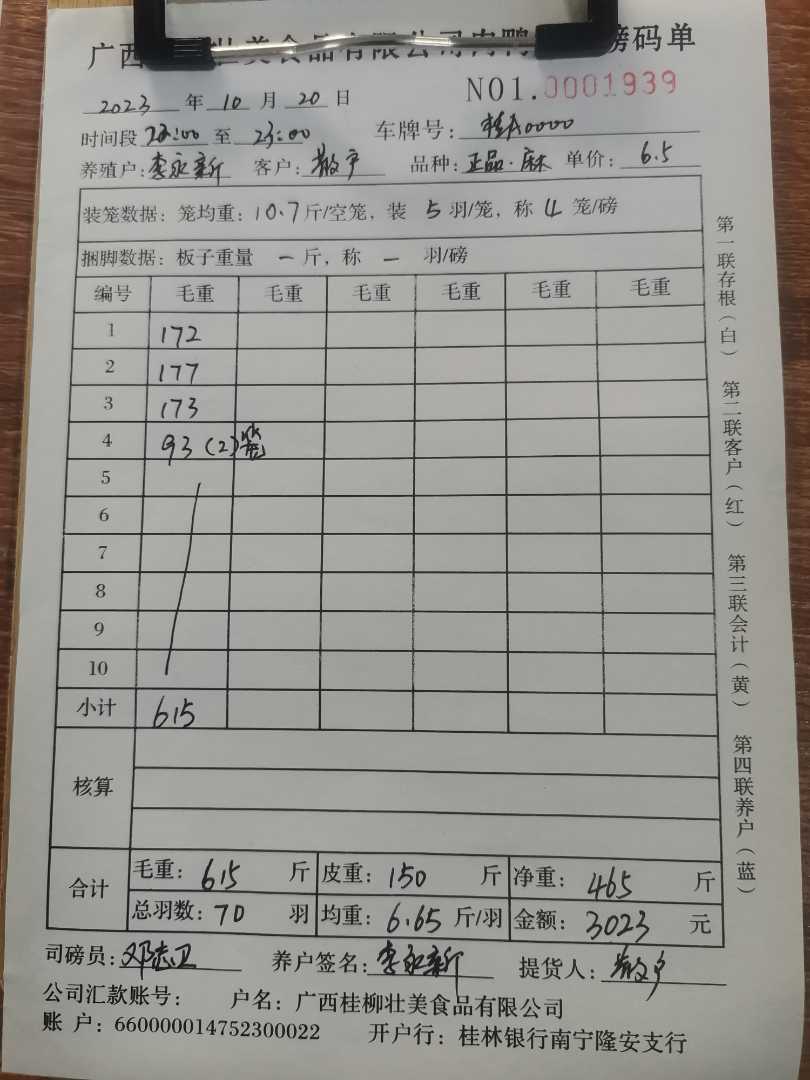 广西 壮美食品有限公司肉鸭 磅码单
2023 年 10 月 20 日 NO1.0001939
时间段 22:00 至 23:00 车牌号: 桂A0000
养殖户: 李永新 客户: 散户 品种: 正品·麻 单价: 6.5
装笼数据: 笼均重: 10.7 斤/空笼, 装 5 羽/笼, 称 4 笼/磅
捆脚数据: 板子重量 一 斤, 称 一 羽/磅
编号 毛重 毛重 毛重 毛重 毛重 毛重
1 172
2 177
3 173
4 93 (2)笼
5
6
7
8
9
10
小计 615
核算
合计 毛重: 615 斤 皮重: 150 斤 净重: 465 斤
总羽数: 70 羽 均重: 6.65 斤/羽 金额: 3023 元
司磅员: 邓志卫 养户签名: 李永新 提货人: 散户
公司汇款账号: 户名: 广西桂柳壮美食品有限公司
账 户: 660000014752300022 开户行: 桂林银行南宁隆安支行
第一联存根(白) 第二联客户(红) 第三联会计(黄) 第四联养户(蓝)